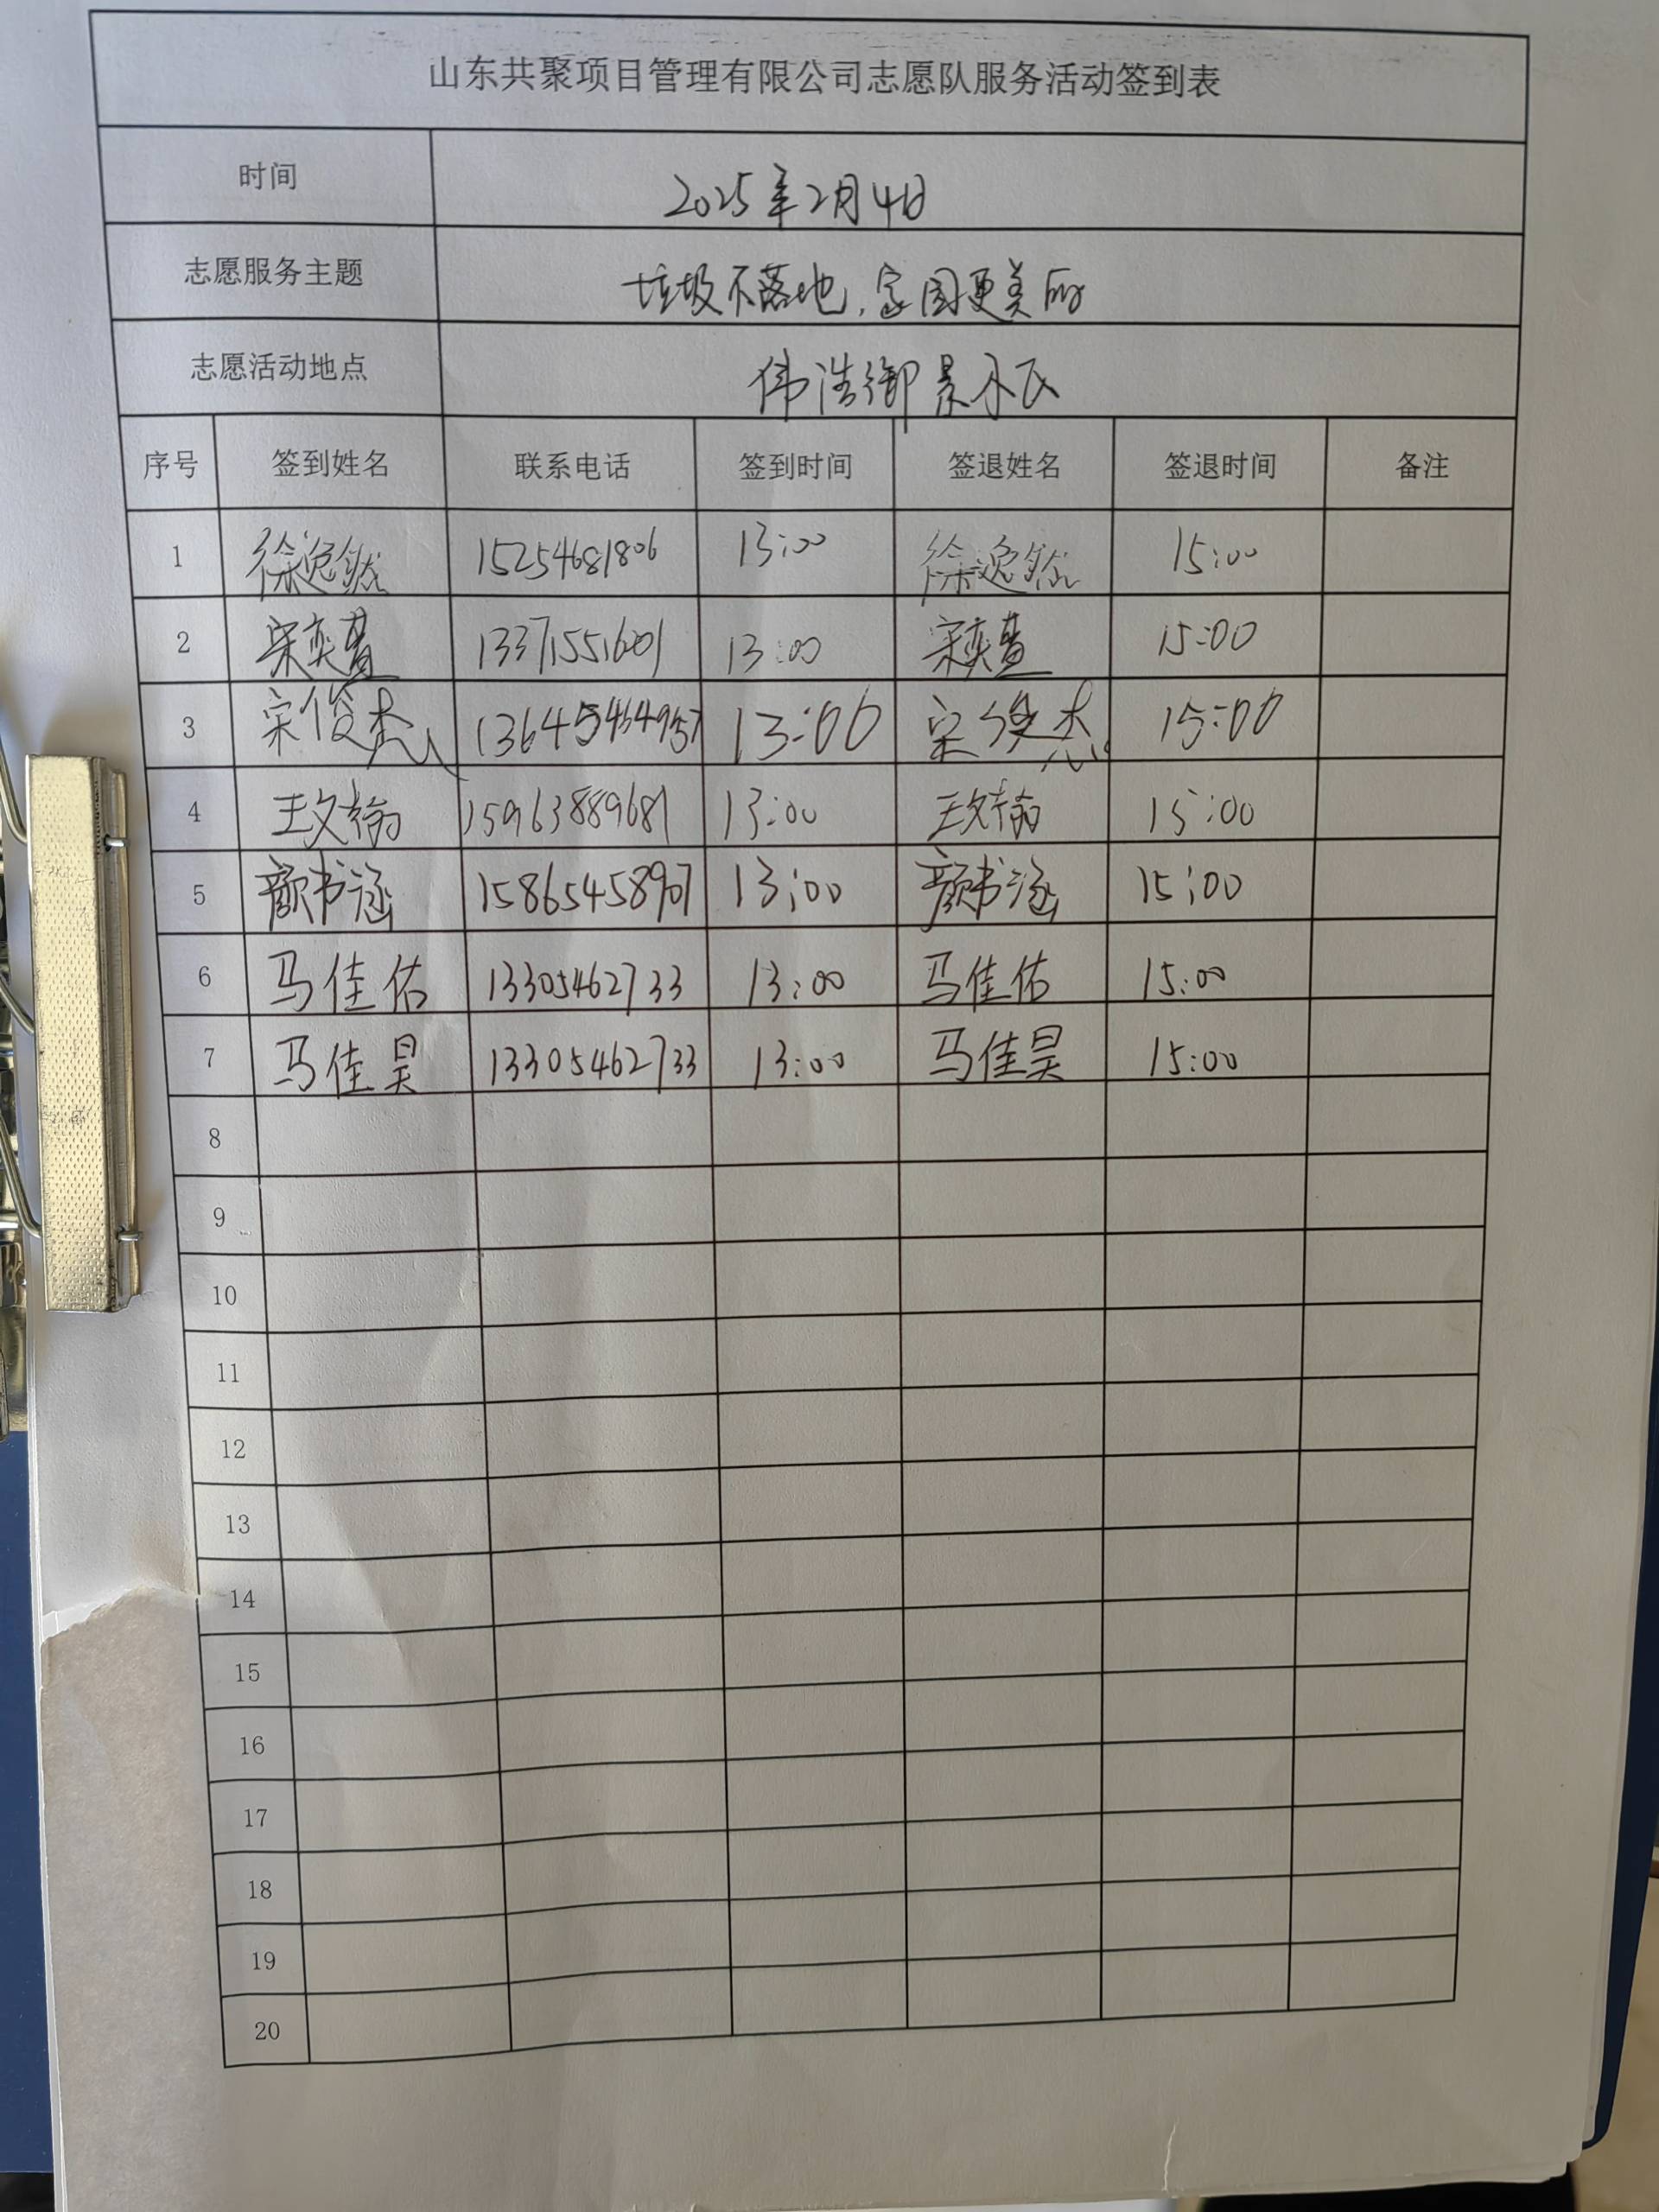 山东共聚项目管理有限公司志愿队服务活动签到表
时间 2025年2月4日
志愿服务主题 垃圾不落地,家园更美丽
志愿活动地点 伟浩御景小区
序号 签到姓名 联系电话 签到时间 签退姓名 签退时间 备注
1 徐逸然 15254681806 13:00 徐逸然 15:00
2 宋奕萱 13371551601 13:00 宋奕萱 15:00
3 宋俊杰 13:00 宋俊杰 15:00
4 王文翰 15963889681 13:00 王文翰 15:00
5 颜书涵 15865458907 13:00 颜书涵 15:00
6 马佳佑 13305462733 13:00 马佳佑 15:00
7 马佳昊 13305462733 13:00 马佳昊 15:00
8
9
10
11
12
13
14
15
16
17
18
19
20